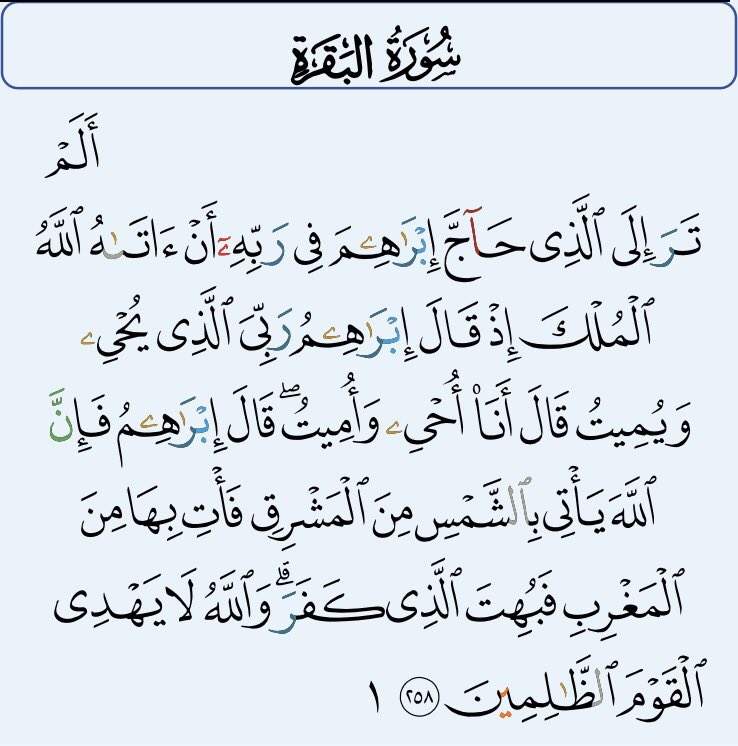 سُورَةُ البَقَرَةِ
أَلَمْ
تَرَ إِلَى ٱلَّذِى حَآجَّ إِبْرَٰهِـۧمَ فِى رَبِّهِۦٓ أَنْ ءَاتَىٰهُ ٱللَّهُ
ٱلْمُلْكَ إِذْ قَالَ إِبْرَٰهِـۧمُ رَبِّىَ ٱلَّذِى يُحْىِۦ
وَيُمِيتُ قَالَ أَنَا۠ أُحْىِۦ وَأُمِيتُ ۖ قَالَ إِبْرَٰهِـۧمُ فَإِنَّ
ٱللَّهَ يَأْتِى بِٱلشَّمْسِ مِنَ ٱلْمَشْرِقِ فَأْتِ بِهَا مِنَ
ٱلْمَغْرِبِ فَبُهِتَ ٱلَّذِى كَفَرَ ۗ وَٱللَّهُ لَا يَهْدِى
ٱلْقَوْمَ ٱلظَّـٰلِمِينَ ٢٥٨ ١